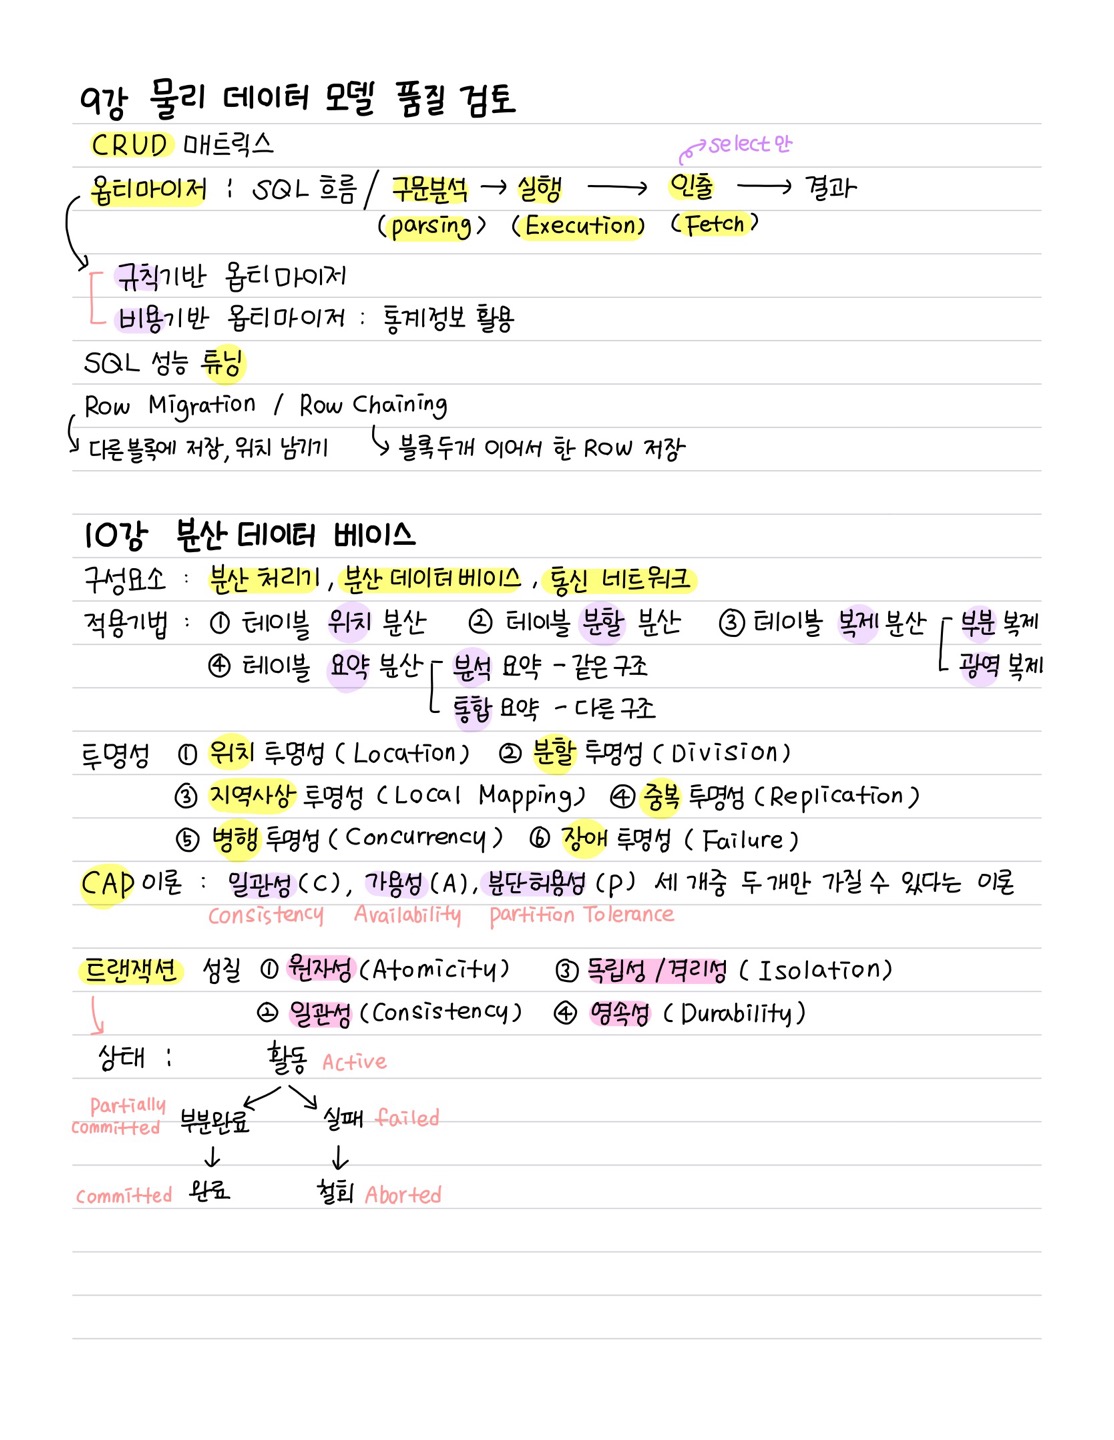 9강 물리 데이터 모델 품질 검토
CRUD 매트릭스
select만
옵티마이저 : SQL 흐름 / 구문분석 → 실행 → 인출 → 결과
(parsing) (Execution) (Fetch)
규칙기반 옵티마이저
비용기반 옵티마이저 : 통계정보 활용
SQL 성능 튜닝
Row Migration / Row Chaining
다른 블록에 저장, 위치 남기기 블록 두개 이어서 한 Row 저장
10강 분산 데이터 베이스
구성요소 : 분산 처리기, 분산 데이터베이스, 통신 네트워크
적용기법 : ① 테이블 위치 분산 ② 테이블 분할 분산 ③ 테이블 복제 분산 부분 복제
④ 테이블 요약 분산 분석 요약 - 같은 구조 광역 복제
통합 요약 - 다른 구조
투명성 ① 위치 투명성 (Location) ② 분할 투명성 (Division)
③ 지역사상 투명성 (Local Mapping) ④ 중복 투명성 (Replication)
⑤ 병행 투명성 (Concurrency) ⑥ 장애 투명성 (Failure)
CAP 이론 : 일관성(C), 가용성(A), 분단허용성(P) 세 개중 두 개만 가질 수 있다는 이론
Consistency Availability partition Tolerance
트랜잭션 성질 ① 원자성 (Atomicity) ③ 독립성 / 격리성 (Isolation)
② 일관성 (Consistency) ④ 영속성 (Durability)
상태 : 활동 Active
Partially
committed 부분완료 실패 failed
committed 완료 철회 Aborted